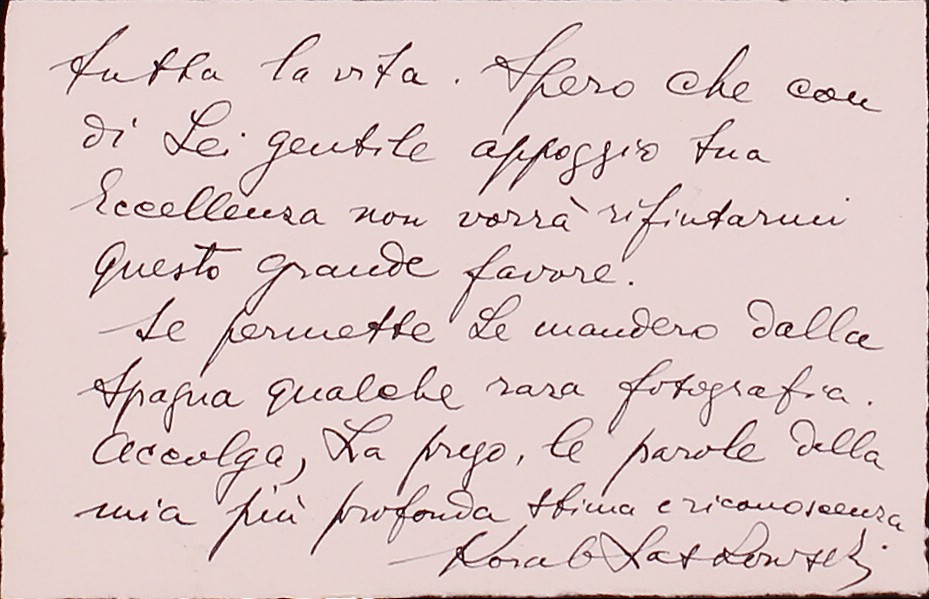 tutta la vita. Spero che con
di Lei gentile appoggio Sua
Eccellenza non vorrà rifiutarmi
questo grande favore.
Se permette Le mandero dalla
Spagna qualche rara fotografia.
Accolga, La prego, le parole della
mia più profonda stima e riconoscenza
Korab Laskowski